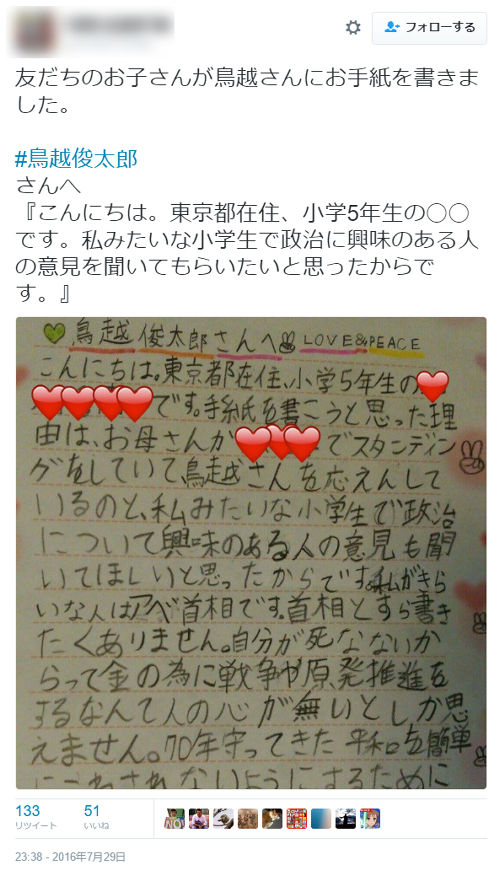 フォローする
友だちのお子さんが鳥越さんにお手紙を書きま
した。
#鳥越俊太郎
さんへ
『こんにちは。東京都在住、小学5年生の〇〇
です。私みたいな小学生で政治に興味のある人
の意見を聞いてもらいたいと思ったからで
す。』
鳥越俊太郎さんへ LOVE&PEACE
こんにちは。東京都在住、小学5年生の
です。手紙を書こうと思った理
由は、お母さんが でスタンディン
グをしていて、鳥越さんを応えんして
いるのと、私みたいな小学生で政治
について興味のある人の意見も聞
いてほしいと思ったからです。私がきら
いな人はアベ首相です。首相とすら書き
たくありません。自分が死なないか
らって金の為に戦争や原発推進を
するなんて人の心が無いとしか思
えません。70年守ってきた平和を簡単
にこわされないようにするために
133 51
リツイート いいね
NO!
23:38 - 2016年7月29日